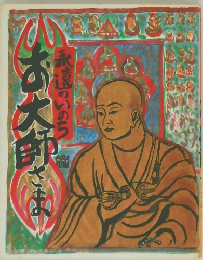 永遠のいのち
お大師さま